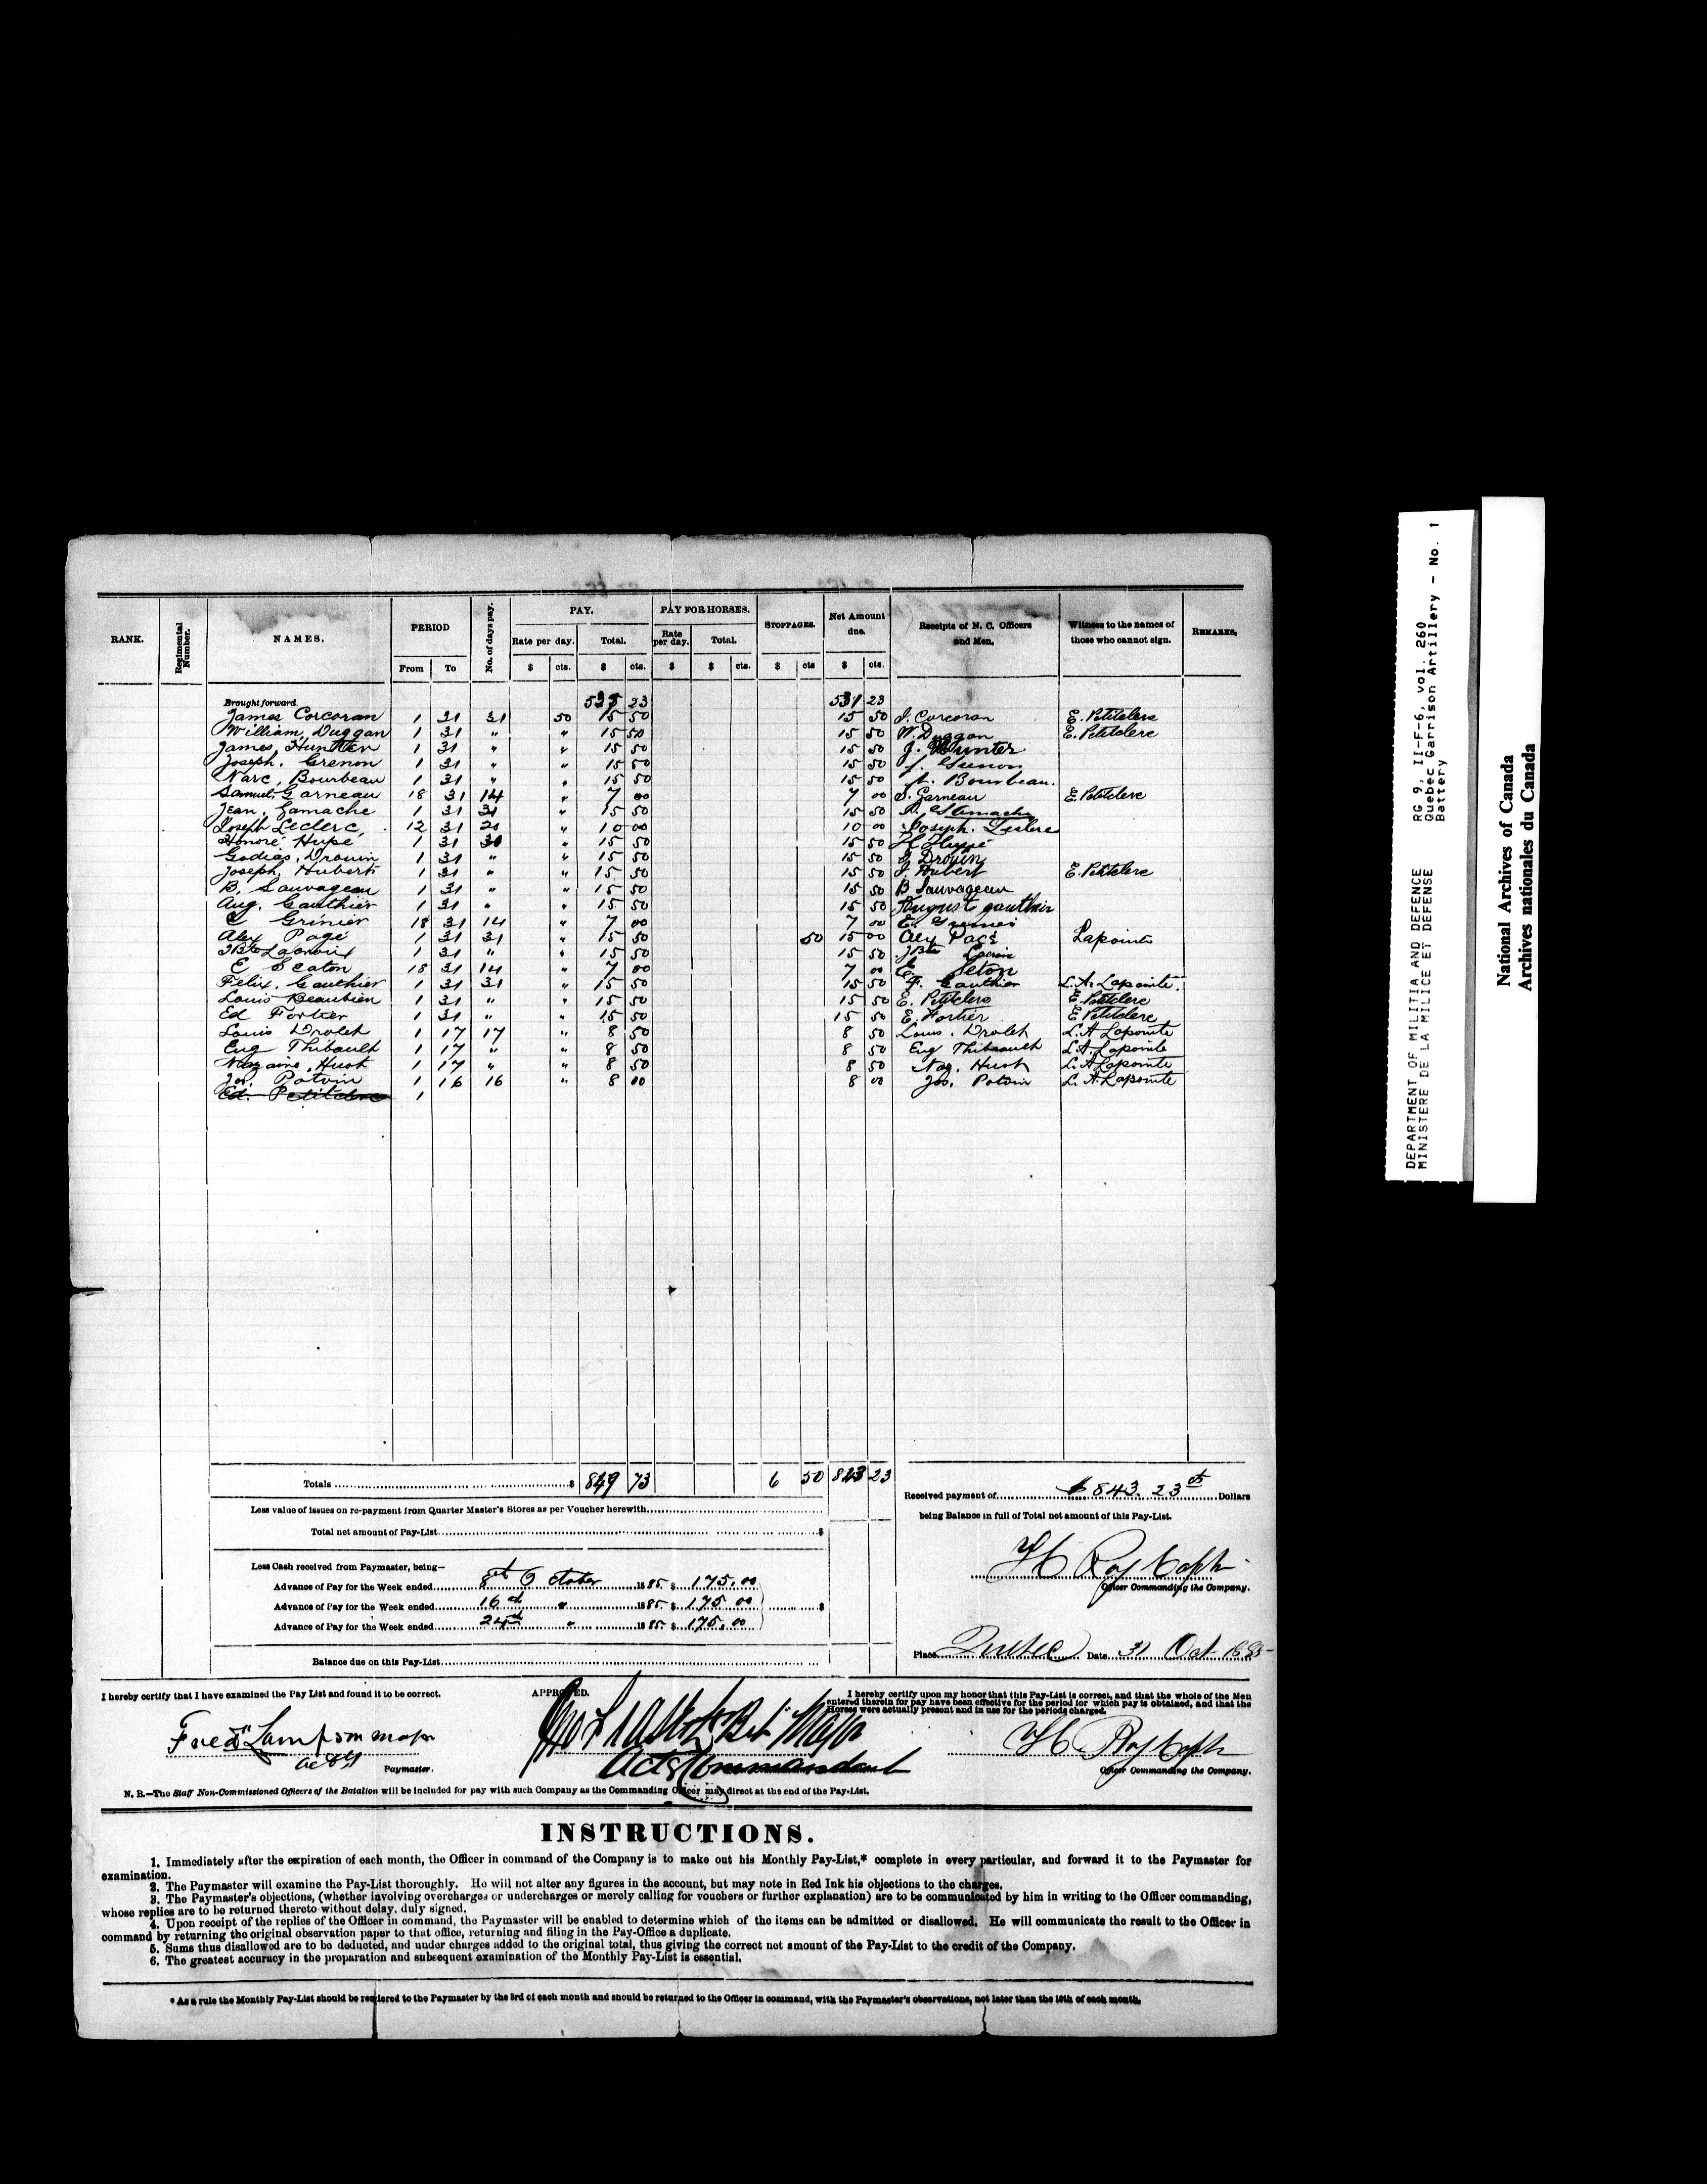 RANK. Regimental Number. NAMES. PERIOD From To No. of days pay. PAY. Rate per day. $ cts. Total. $ cts. PAY FOR HORSES. Rate per day. $ Total. $ cts. STOPPAGES. $ cts Net Amount due. $ cts. Receipts of N. C. Officers and Men. Witness to the names of those who cannot sign. REMARKS.
Brought forward. 535 23 531 23
James Corcoran 1 31 31 50 15 50 15 50 J. Corcoran E. Petitclerc
William, Duggan 1 31 " " 15 50 15 50 W. Duggan E. Petitclerc
James, Huntter 1 31 " " 15 50 15 50 J. Hunter
Joseph. Grenon 1 31 " " 15 50 15 50 J. Grenon
Narc, Bourbeau 1 31 " " 15 50 15 50 N. Bourbeau.
Samuel, Garneau 18 31 14 " 7 00 7 00 S. Garneau E. Petitclerc
Jean, Gamache 1 31 31 " 15 50 15 50 Gamache
Joseph Leclerc, 12 31 20 " 10 00 10 00 Joseph. Leclerc
Honoré Hupé 1 31 " 15 50 15 50 H Huppé
Godias, Drouin 1 31 " " 15 50 15 50 G Drouin
Joseph, Hubert 1 31 " " 15 50 15 50 J. Hubert E. Petitclerc
B. Sauvageau 1 31 " " 15 50 15 50 B Sauvageau
Aug. Gauthier 1 31 " " 15 50 15 50 August gauthier
E Grinier 18 31 14 " 7 00 7 00 E. Grenier
Alex Pagé 1 31 31 " 15 50 50 15 00 Alex Pagé Lapointe
JBte 1 31 " " 15 50 15 50 JBte
E Seaton 18 31 14 " 7 00 7 00 E Seton
Felix, Gauthier 1 31 31 " 15 50 15 50 F. Gauthier L.A. Lapointe.
Louis Beaubien 1 31 " " 15 50 15 50 E. Petitclerc E. Petitclerc
Ed Fortier 1 31 " " 15 50 15 50 E. Fortier E Petitclerc
Louis Drolet 1 17 17 " 8 50 8 50 Louis. Drolet L.A Lapointe
Eug Thibault 1 17 " " 8 50 8 50 Eug Thibeault L.A. Lapointe
Nazaire, Huot 1 17 " " 8 50 8 50 Naz. Huot L.A Lapointe
Jos. Potvin 1 16 16 " 8 00 8 00 Jos. Potvin L.A. Lapointe
Ed. Petitclerc 1
Totals $ 849 73 6 50 843 23
Received payment of $843.23 cts Dollars
Less value of issues on re-payment from Quarter Master's Stores as per Voucher herewith
being Balance in full of Total net amount of this Pay-List.
Total net amount of Pay-List $
H Roy Captn
Officer Commanding the Company.
Less Cash received from Paymaster, being—
Advance of Pay for the Week ended October 1885 $ 175.00
Advance of Pay for the Week ended 16th " 1885 $ 175 00 $
Advance of Pay for the Week ended 24th " 1885 $ 175.00
Place Quebec Date 31 Oct 1885
Balance due on this Pay-List
I hereby certify that I have examined the Pay List and found it to be correct.
APPROVED.
I hereby certify upon my honor that this Pay-List is correct, and that the whole of the Men
entered therein for pay have been effective for the period for which pay is obtained, and that the
Horses were actually present and in use for the periods charged.
Fred Lampson major
Paymaster.
Bt Major
Actg Commandant
H Roy Captn
Officer Commanding the Company.
N. B.—The Staff Non-Commissioned Officers of the Batalion will be included for pay with such Company as the Commanding Officer may direct at the end of the Pay-List.
INSTRUCTIONS.
1. Immediately after the expiration of each month, the Officer in command of the Company is to make out his Monthly Pay-List,* complete in every particular, and forward it to the Paymaster for
examination.
2. The Paymaster will examine the Pay-List thoroughly. He will not alter any figures in the account, but may note in Red Ink his objections to the charges.
3. The Paymaster's objections, (whether involving overcharges or undercharges or merely calling for vouchers or further explanation) are to be communicated by him in writing to the Officer commanding,
whose replies are to be returned thereto without delay, duly signed.
4. Upon receipt of the replies of the Officer in command, the Paymaster will be enabled to determine which of the items can be admitted or disallowed. He will communicate the result to the Officer in
command by returning the original observation paper to that office, returning and filing in the Pay-Office a duplicate.
5. Sums thus disallowed are to be deducted, and under charges added to the original total, thus giving the correct not amount of the Pay-List to the credit of the Company.
6. The greatest accuracy in the preparation and subsequent examination of the Monthly Pay-List is essential.
* As a rule the Monthly Pay-List should be rendered to the Paymaster by the 3rd of each month and should be returned to the Officer in command, with the Paymaster's observations, not later than the 10th of each month.
DEPARTMENT OF MILITIA AND DEFENCE RG 9, II-F-6, vol. 260
MINISTERE DE LA MILICE ET DEFENSE Quebec Garrison Artillery - No. 1
Battery
National Archives of Canada
Archives nationales du Canada